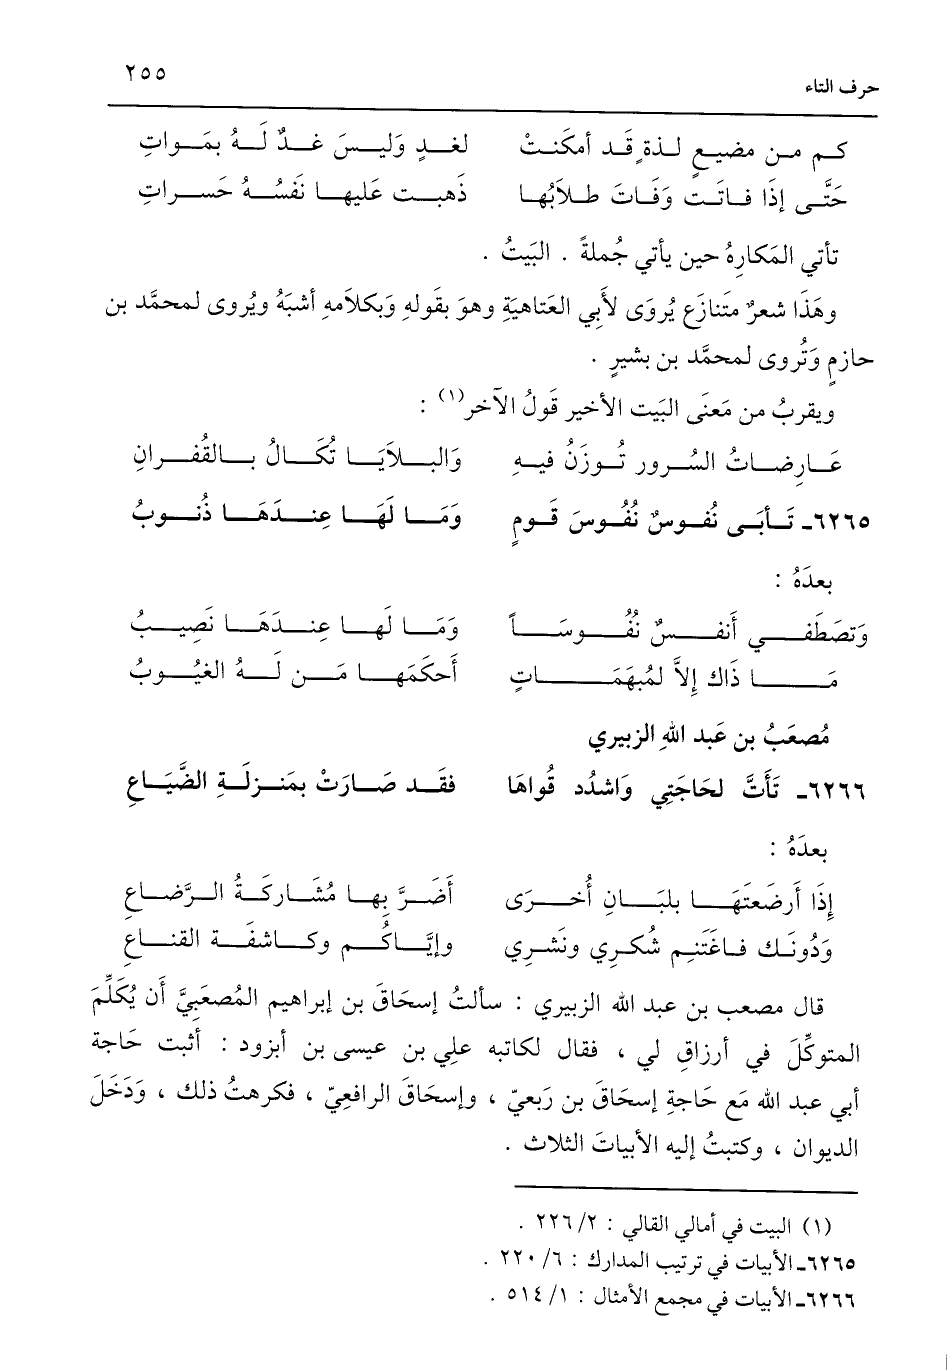 حرف التاء ٢٥٥
كم من مضيع لذةٍ قد أمكنتْ لغدٍ وَليسَ غدٌ لَهُ بمَواتِ
حَتَّى إذَا فاتَت وَفَاتَ طلاَبُها ذَهبت عَليها نفَسُهُ حَسراتِ
تأتي المَكارِهُ حين يأتي جُملةً . البَيتُ .
وهَذَا شعرٌ متَنازَع يُروَى لأبي العتاهيَةِ وهوَ بقَولهِ وَبكلاَمهِ أشبَهُ ويُروى لمحمَّد بن
حازمٍ وَتُروى لمحمَّد بن بشيرٍ .
ويقربُ من مَعنَى البَيت الأخير قَولُ الآخر(١) :
عَارضاتُ السُرور تُوزَنُ فيهِ وَالبلاَيَا تُكَالُ بالقُفرانِ
٦٢٦٥ـ تَأبَى نُفوسٌ نُفُوسَ قَومٍ وَمَا لَهَا عِندَهَا ذُنوبُ
بعدَهُ :
وَتصَطَفي أَنفسٌ نُفُوسَاً وَمَا لَها عِندَهَا نَصِيبُ
مَا ذَاك إلاَّ لمُبهَمَاتٍ أَحكمَها مَن لَهُ الغيُوبُ
مُصعَبُ بن عَبد اللهِ الزبيري
٦٢٦٦ـ تَأَتَّ لحَاجَتِي وَاشدُد قُواهَا فقَد صَارَتْ بمَنزلَةِ الضَّيَاعِ
بعدَهُ :
إذَا أَرضَعتَهَا بلبَانِ أُخرَى أَضَرَّ بِها مُشَاركَةُ الرَّضاعِ
وَدُونَك فاغَتَنِم شُكري ونَشري وإيَّاكُم وكاشفَة القناعِ
قال مصعب بن عبد الله الزبيري : سألتُ إسحَاقَ بن إبراهيم المُصعَبِيَّ أَن يُكَلِّمَ
المتوكِّلَ في أرزاقٍ لي ، فقال لكاتبه علِي بن عيسى بن أبزود : أثبت حَاجة
أبي عبد الله مَع حَاجةِ إسحَاقَ بن رَبعيّ ، وإسحَاقَ الرافعِيّ ، فكرهتُ ذلك ، وَدَخَلَ
الديوان ، وكتبتُ إليه الأبياتَ الثلاث .
(١) البيت في أمالي القالي : ٢/ ٢٢٦ .
٦٢٦٥ـ الأبيات في ترتيب المدارك : ٦/ ٢٢٠ .
٦٢٦٦ـ الأبيات في مجمع الأمثال : ١/ ٥١٤ .